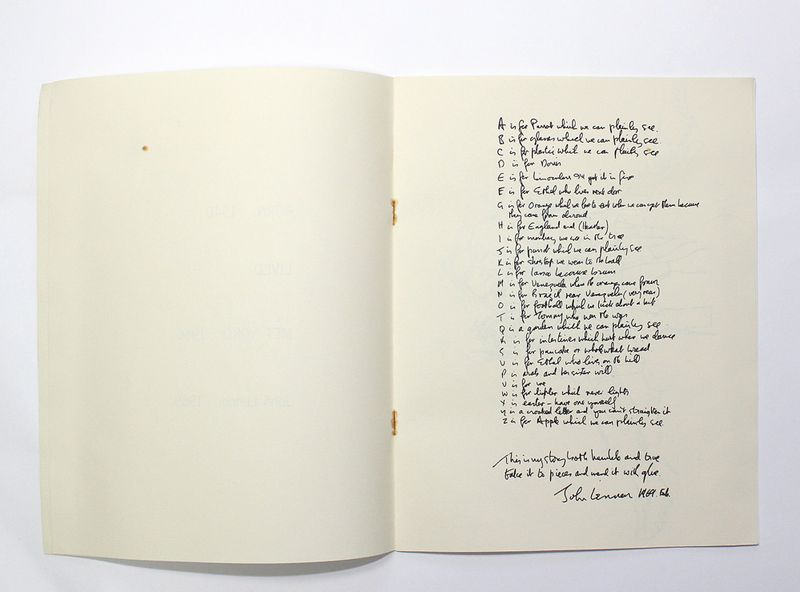 A is for Parrot which we can plainly see.
B is for glasses which we can plainly see
C is for plastic which we can plainly see
D is for Doris
E is for binoculars I'll get it in five
F is for Ethel who lives next door
G is for Orange which we love to eat when we can get them because
they come from abroad
H is for England and (Heather)
I is for monkey we see in the tree
J is for parrot which we can plainly see
K is for shoetop we wear to the ball
L is for Land because brown
M is for Venezuela where the oranges come from
N is for Brazil near Venezuela (very near)
O is for football which we kick about a bit
T is for Tommy who won the war
Q is a garden which we can plainly see
R is for intestines which hurt when we dance
S is for pancake or whole wheat bread
U is for Ethel who lives on the hill
P is arab and her sister will
V is for me
W is for lighter which never lights
X is easter - have one yourself
Y is a crooked letter and you can't straighten it
Z is for Apple which we can plainly see.
This is my story both humble and true
take it to pieces and mend it with glue.
John Lennon 1969. Feb.